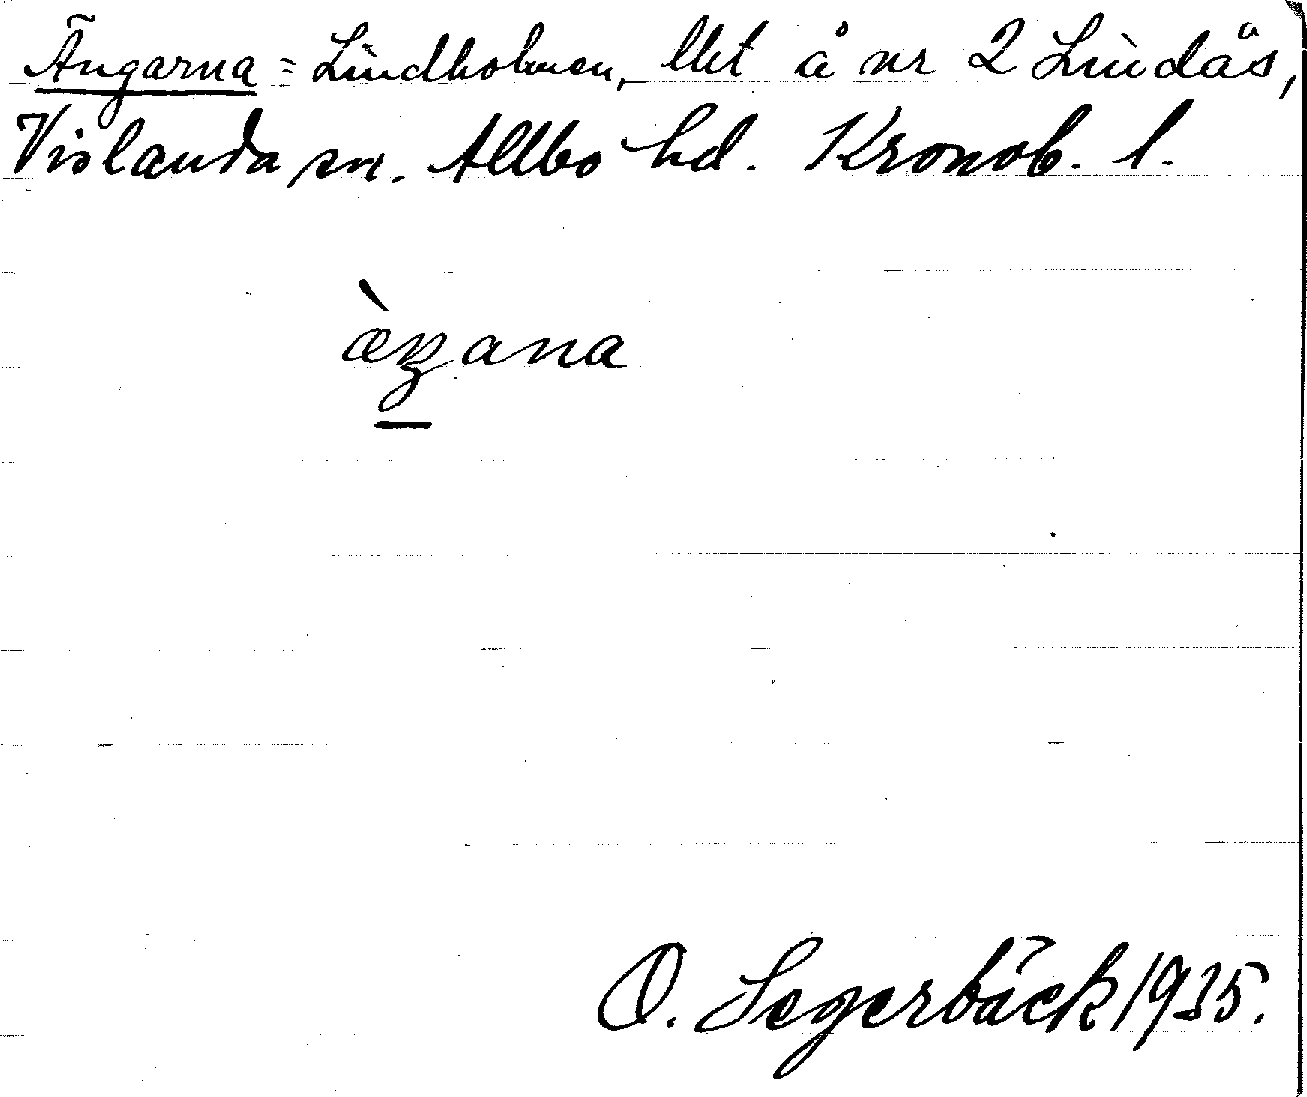 Ängarna = Lindholmen, lht å nr 2 Lindås,
Vislanda sn. Allbo hd. Kronob. l.
æ̀ŋana
O. Segerbäck 1935.